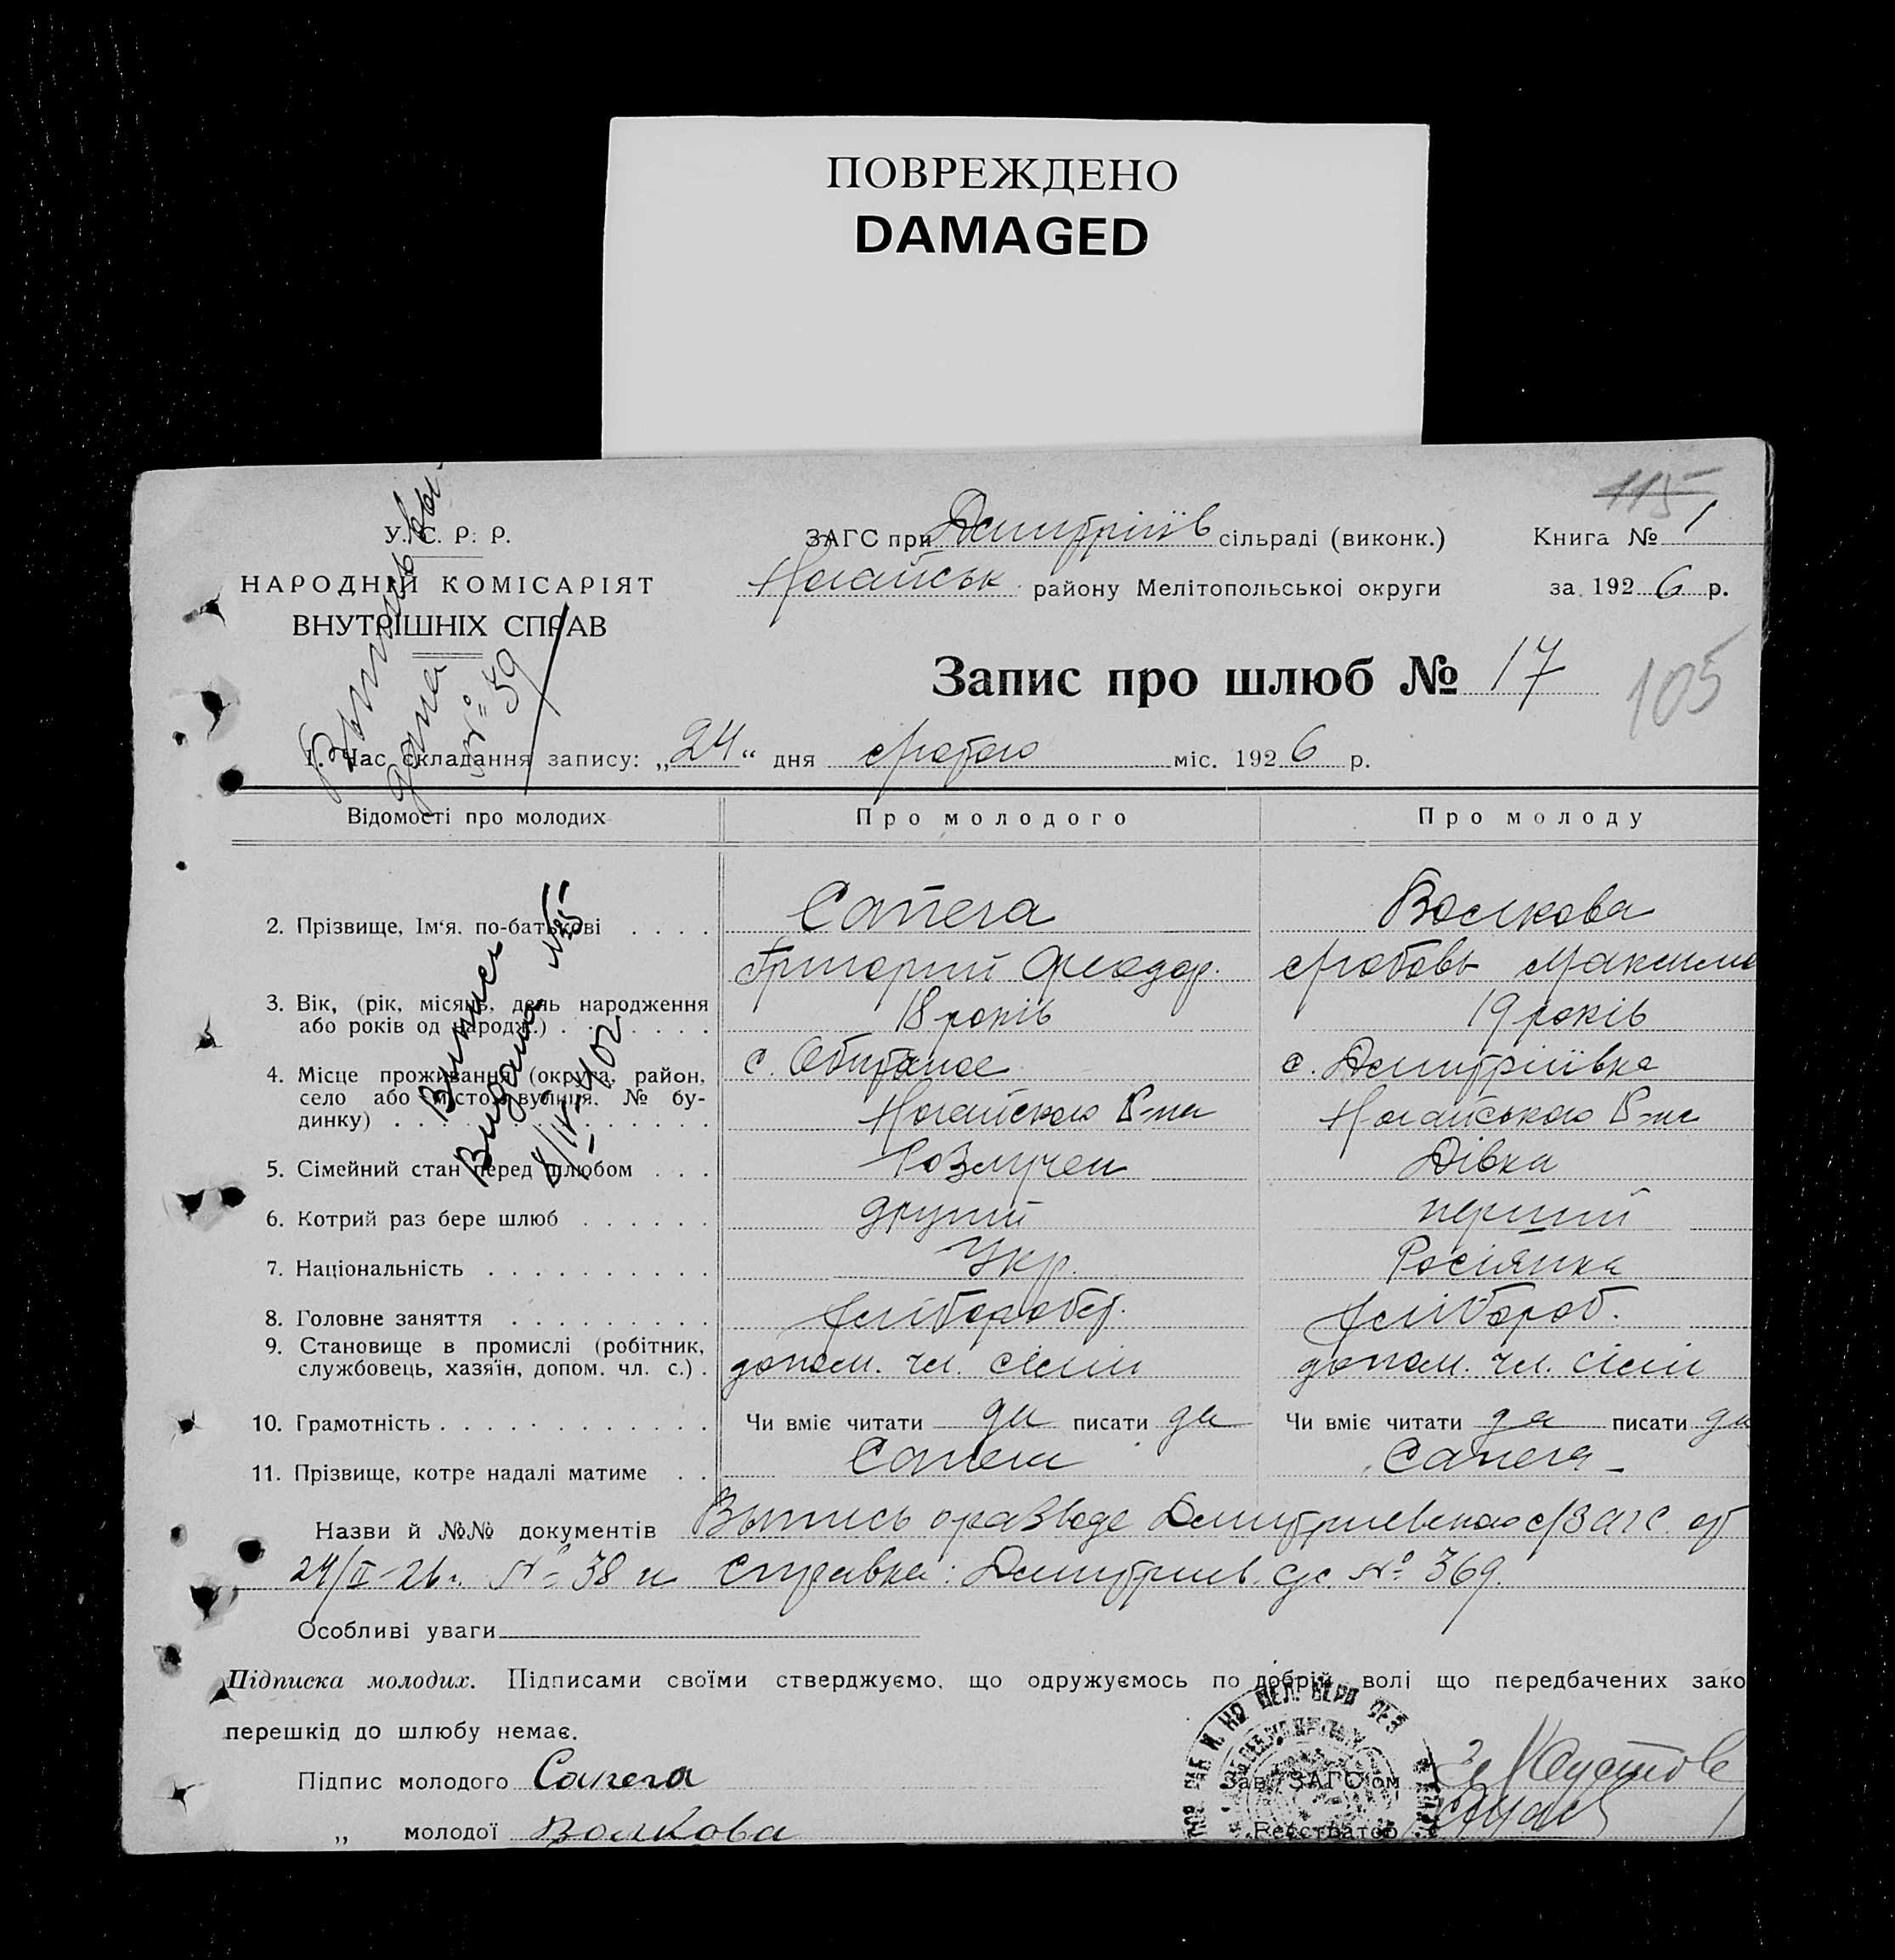 ПОВРЕЖДЕНО
DAMAGED
115
У. С. Р. Р.
НАРОДНІЙ КОМІСАРІЯТ
ВНУТРІШНІХ СПРАВ
ЗАГС при Дмитріїв сільраді (виконк.)
Ногайськ району Мелітопольської округи
Книга № 1
за 1926 р.
Запис про шлюб № 17
105
1. Час складання запису: „24“ дня лютого міс. 1926 р.
дана
№ 39
Відомості про молодих Про молодого Про молоду
Випись
Видана №
2. Прізвище, Ім‘я. по-батькові . . . . Сапега Волкова
Григорий Феодор. Любовь Максимо
3. Вік, (рік, місяць, день народження
або років од народж.) . . . . . . . 18 років 19 років
4. Місце проживання (округа, район,
село або місто, вулиця, № бу-
динку) . . . . . . . . . . . . . . .
с. Обиточное с. Дмитріївка
Ногайского Р-на Ногайського Р-на
5. Сімейний стан перед шлюбом . . . Розлучен Дівка
6. Котрий раз бере шлюб . . . . . . другий перший
7. Національність . . . . . . . . . . Укр. Росіянка
8. Головне заняття . . . . . . . . . Хлібороб. Хлібороб.
9. Становище в промислі (робітник,
службовець, хазяїн, допом. чл. с.) . допом. чл. сімїі допом. чл. сімїі
10. Грамотність . . . . . . . . . . . . Чи вміє читати да писати да Чи вміє читати да писати да
11. Прізвище, котре надалі матиме . . Сапега Сапега
Назви й №№ документів Выпись о разводе Дмитриевского с/ЗАГС. от
24/II-26 г. № 38 и справка: Дмитриев. с/с. № 369.
Особливі уваги
Підписка молодих. Підписами своїми стверджуємо, що одружуємось по добрій волі що передбачених зако
перешкід до шлюбу немає.
Підпис молодого Сапега
Зав. ЗАГС'ом
„ молодої Волкова
Реєстратор